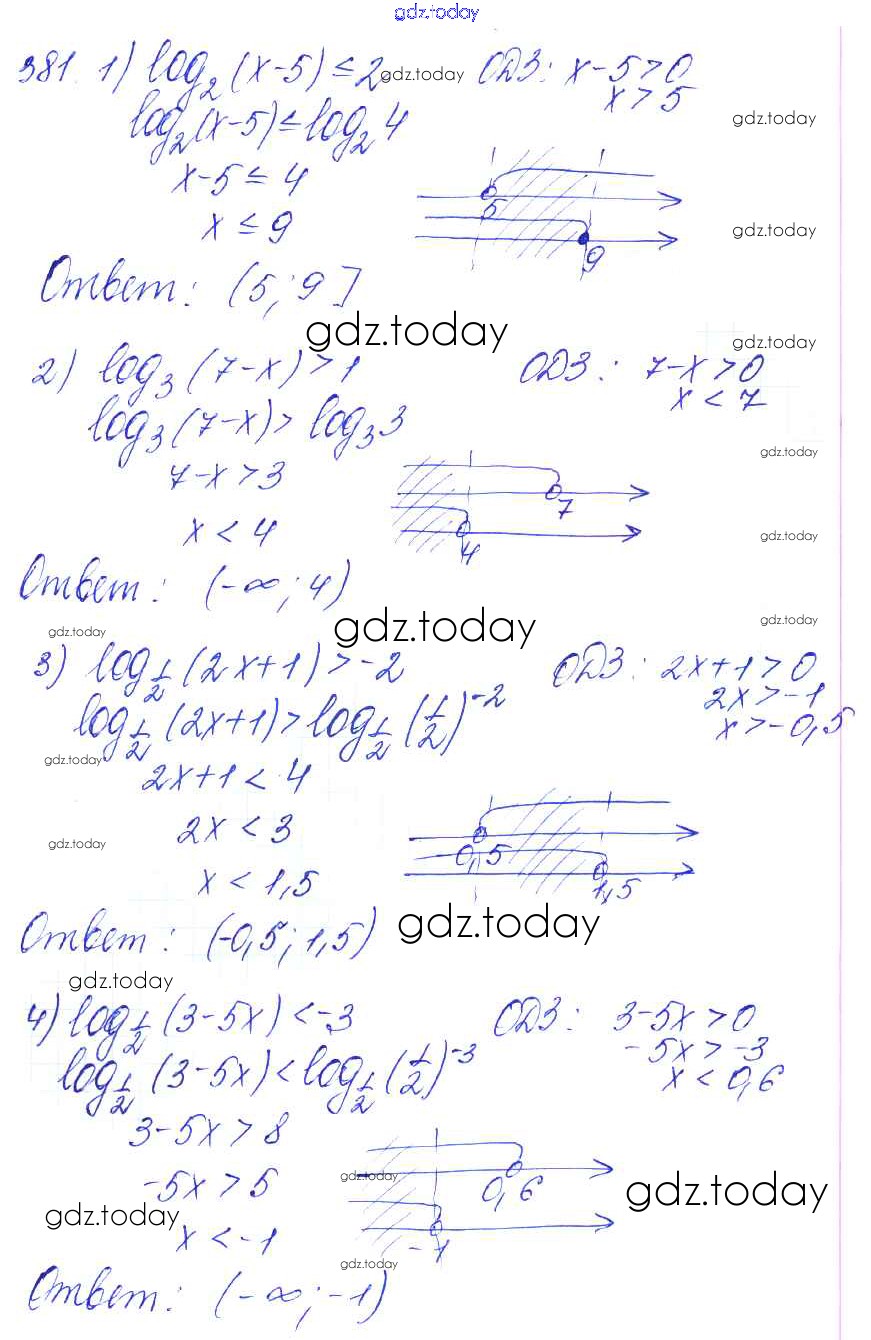 gdz.today
381. 1) log₂(x-5) ≤ 2 gdz.today ОДЗ: x-5>0
x>5
gdz.today
log₂(x-5) ≤ log₂4
x-5 ≤ 4
5
x ≤ 9
gdz.today
9
Ответ: (5; 9]
gdz.today
gdz.today
2) log₃(7-x)>1 ОДЗ: 7-x>0
x<7
log₃(7-x)> log₃3
gdz.today
7-x>3
7
x < 4
gdz.today
4
Ответ: (-∞; 4)
gdz.today
gdz.today
gdz.today
3) log_{1/2}(2x+1)>-2 ОДЗ: 2x+1>0
2x>-1
x>-0,5
log_{1/2}(2x+1)>log_{1/2}(1/2)^{-2}
gdz.today
2x+1<4
2x<3
gdz.today
0,5
x<1,5
1,5
Ответ: (-0,5; 1,5)
gdz.today
gdz.today
4) log_{1/2}(3-5x)<-3 ОДЗ: 3-5x>0
-5x>-3
x<0,6
log_{1/2}(3-5x)<log_{1/2}(1/2)^{-3}
3-5x>8
gdz.today
-5x>5
0,6
gdz.today
gdz.today
x<-1
-1
gdz.today
Ответ: (-∞; -1)